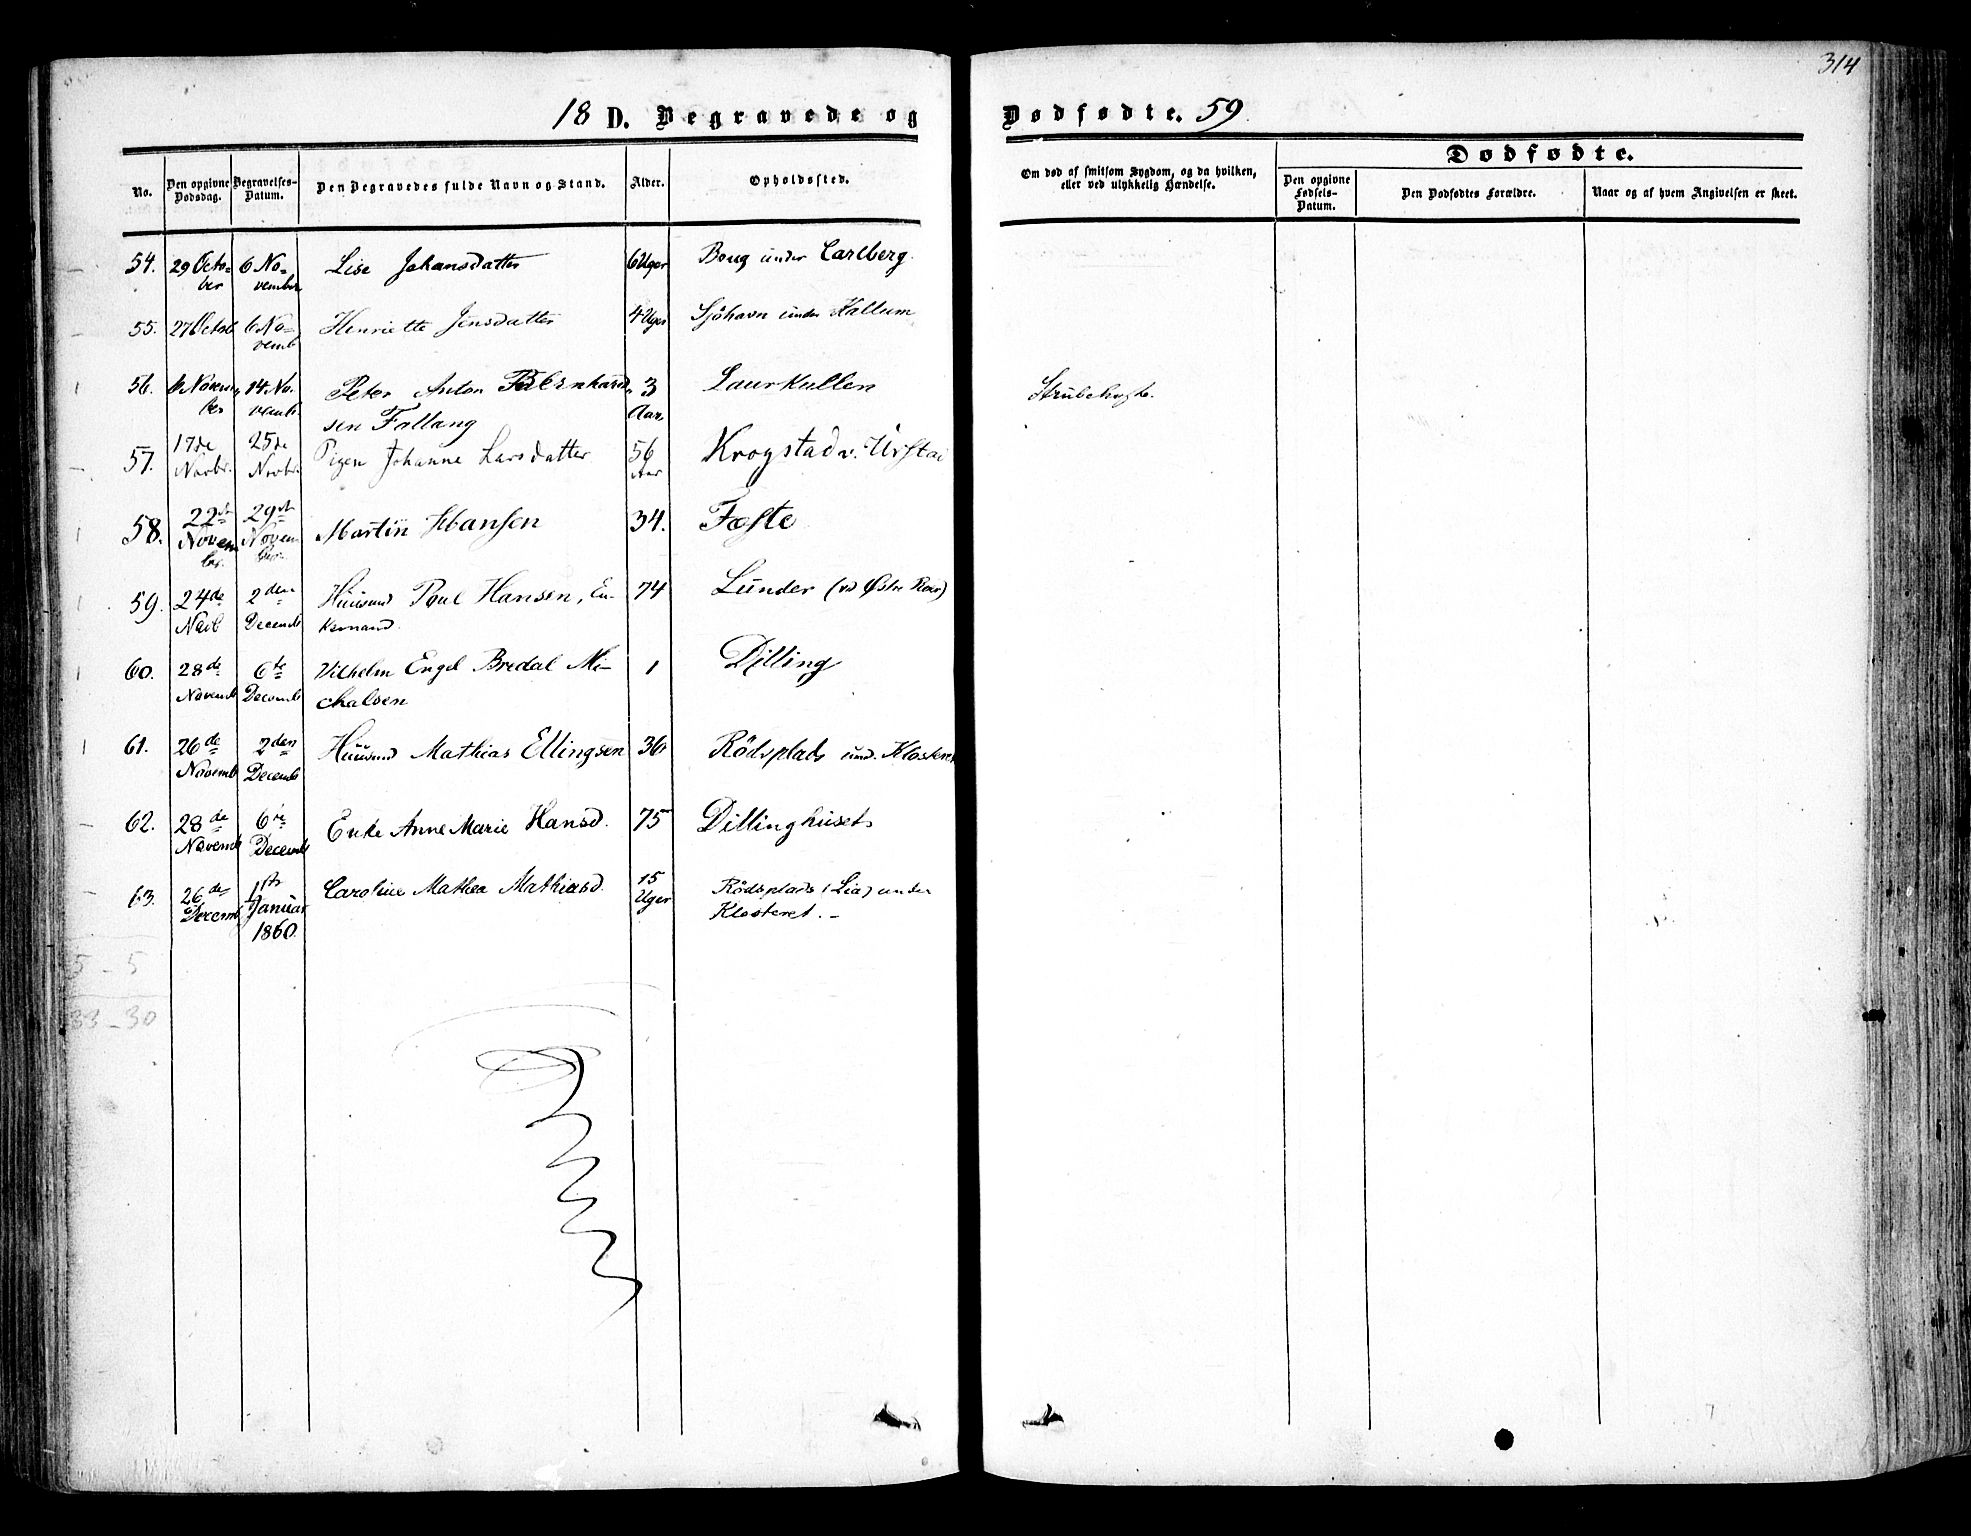 314
18 D. Begravede og Dødfødte. 59.
No.
Den opgivne Dødsdag.
Begravelses-Datum.
Den Begravedes fulde Navn og Stand.
Alder.
Opholdssted.
Om død af smitsom Sygdom, og da hvilken,
eller ved ulykkelig Hændelse.
Dødfødte.
Den opgivne Fødsels-Datum.
Den Dødfødtes Forældre.
Naar og af hvem Angivelsen er skeet.
54. 29 Octo- 6 No- Lise Johansdatter 6 Uger Boug under Carlberg.
ber vember
55. 27 Octob 6 No- Henriette Jensdatter 4 Uger Sjöhavn under Kallum
vemb
56. 6 Novem- 14 No- Peter Anton Bernhard- 3 Laurkullen Strubehoste.
ber vemb. sen Fallang Aar
57. 17de 25de Pigen Johanne Larsdatter 56 Krogstad v. Urstad
Novbr. Novbr. Aar
58. 22de 29de Martin Hansen 34. Feste
Novem Novem
br. ber.
59. 24de 2den Huusmd Poul Hansen, En- 74 Lunder (vd Østre Roer)
Novb Decemb kemand.
60. 28de 6te Vilhelm Engel Bredal Mi- 1 Dilling
Novemb Decemb chalsen
61. 26de 2den Huusmd Mathias Ellingsen 36 Rödsplads und. Klosteret
Novemb Decemb
62. 28de 6te Enke Anne Marie Hansd. 75 Dillinghuset
Novemb Decemb
63. 26de 1ste Caroline Mathea Mathiasd. 15 Rödsplads (Lia) under
Decemb Januar Uger Klosteret. –
1860.
5 - 5
33 - 30